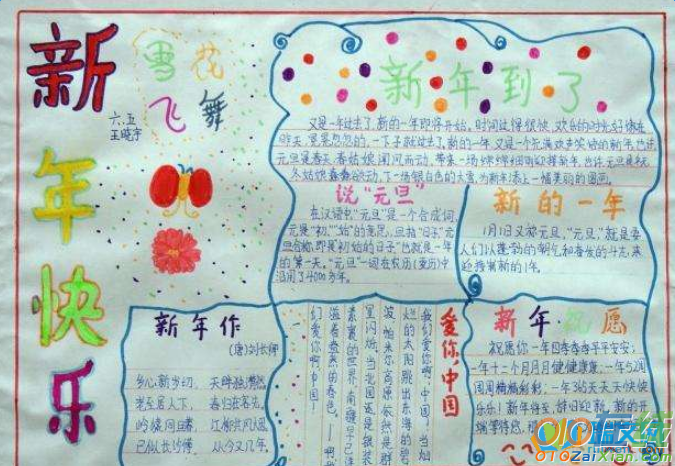 新年快乐
雪花
飞舞
六.五
王晓宇
新年到了
又是一年过去了,新的一年即将开始。时间过得很快,欢乐的时光好像在
昨天,匆匆忽忽的,一下子就过去了。新的一年又是一个充满欢声笑语的新年,也许
元旦是春天,春姑娘闻风而动,带来一场绵绵细雨迎接新年,也许元旦是
冬姑娘蠢蠢欲动,下一场银白色的大雪,为新年添上一幅美丽的图画。
说“元旦”
在汉语中“元旦”是一个合成词,
元是“初”、“始”的意思,旦指“日子”元
旦合称即是“初始的日子”也就是一年
的第一天。“元旦”一词在农历(夏历)中
沿用了4000多年。
新的一年
1月1日又称元旦,“元旦”就是要
人们以蓬勃的朝气和奋发的斗志来
迎接崭新的1年。
新年作
(唐)刘长卿
乡心新岁切,天畔独潸然。
老至居人下,春归在客先。
岭猿同旦暮,江柳共风烟。
已似长沙傅,从今又几年。
爱你,中国
我们爱你啊,中国!当灿
烂的太阳跳出东海的碧
波,帕米尔高原依然是群
星闪烁,当北国还是银装
素裹的世界,南疆早已洋
溢着盎然的春色。——啊,我
们爱你啊,中国!
新年·祝愿
祝愿你一年四季季季平平安安;
一年十二个月月月健健康康;一年52周
周周精精彩彩;一年365天天天快快
乐乐!新年将至,辞旧迎新,新的开
010ZaiXian.com